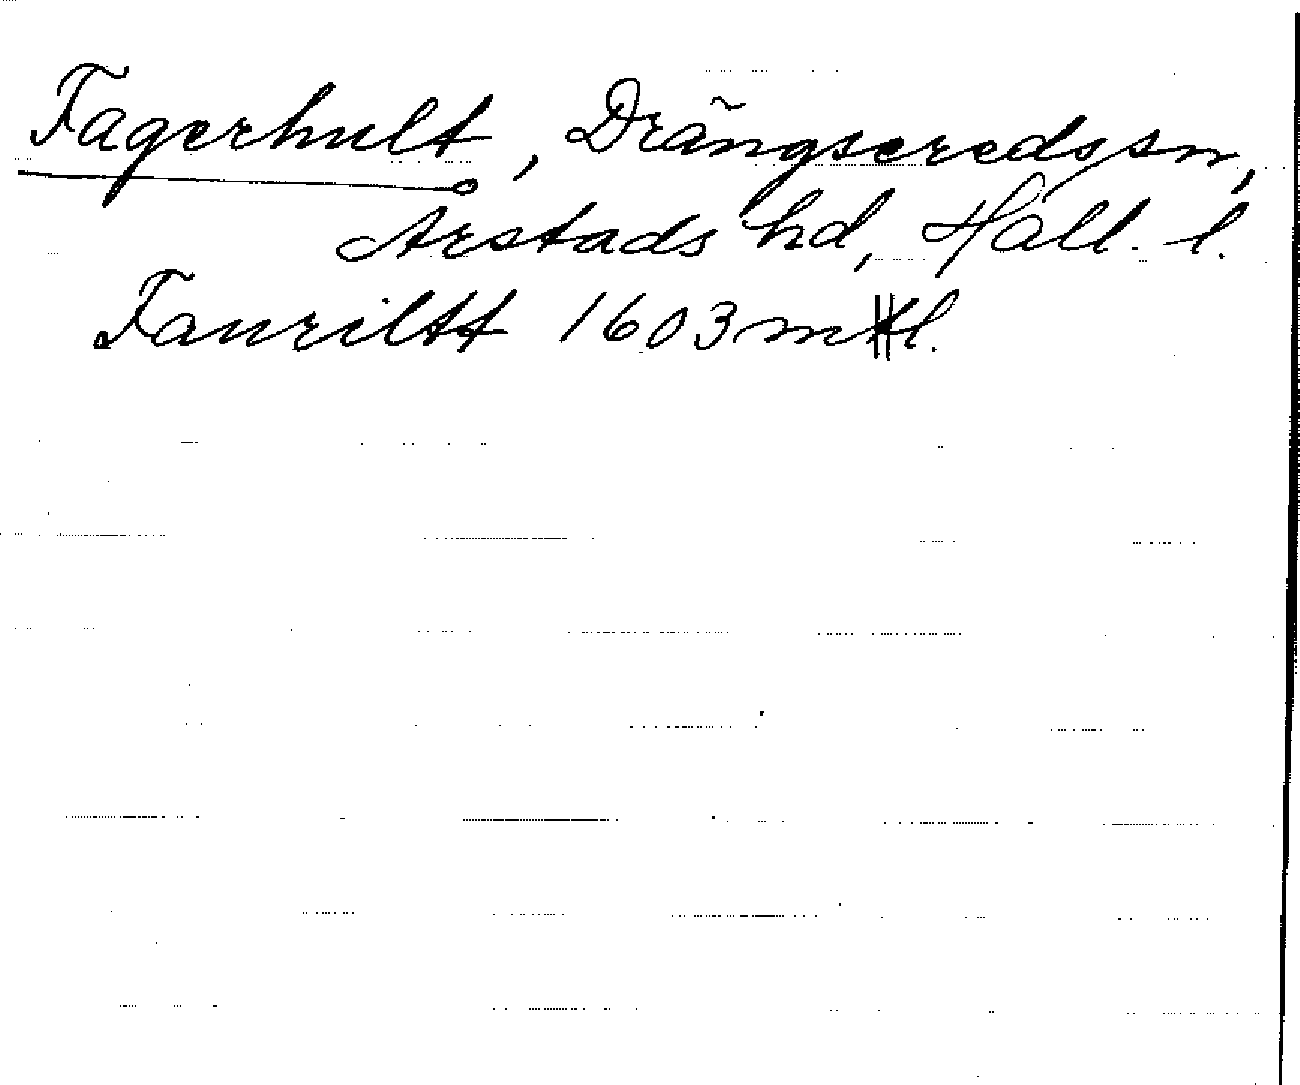 Fagerhult, Drängseredssn,
Årstads hd, Hall. l.
Fauriltt 1603 mtl.